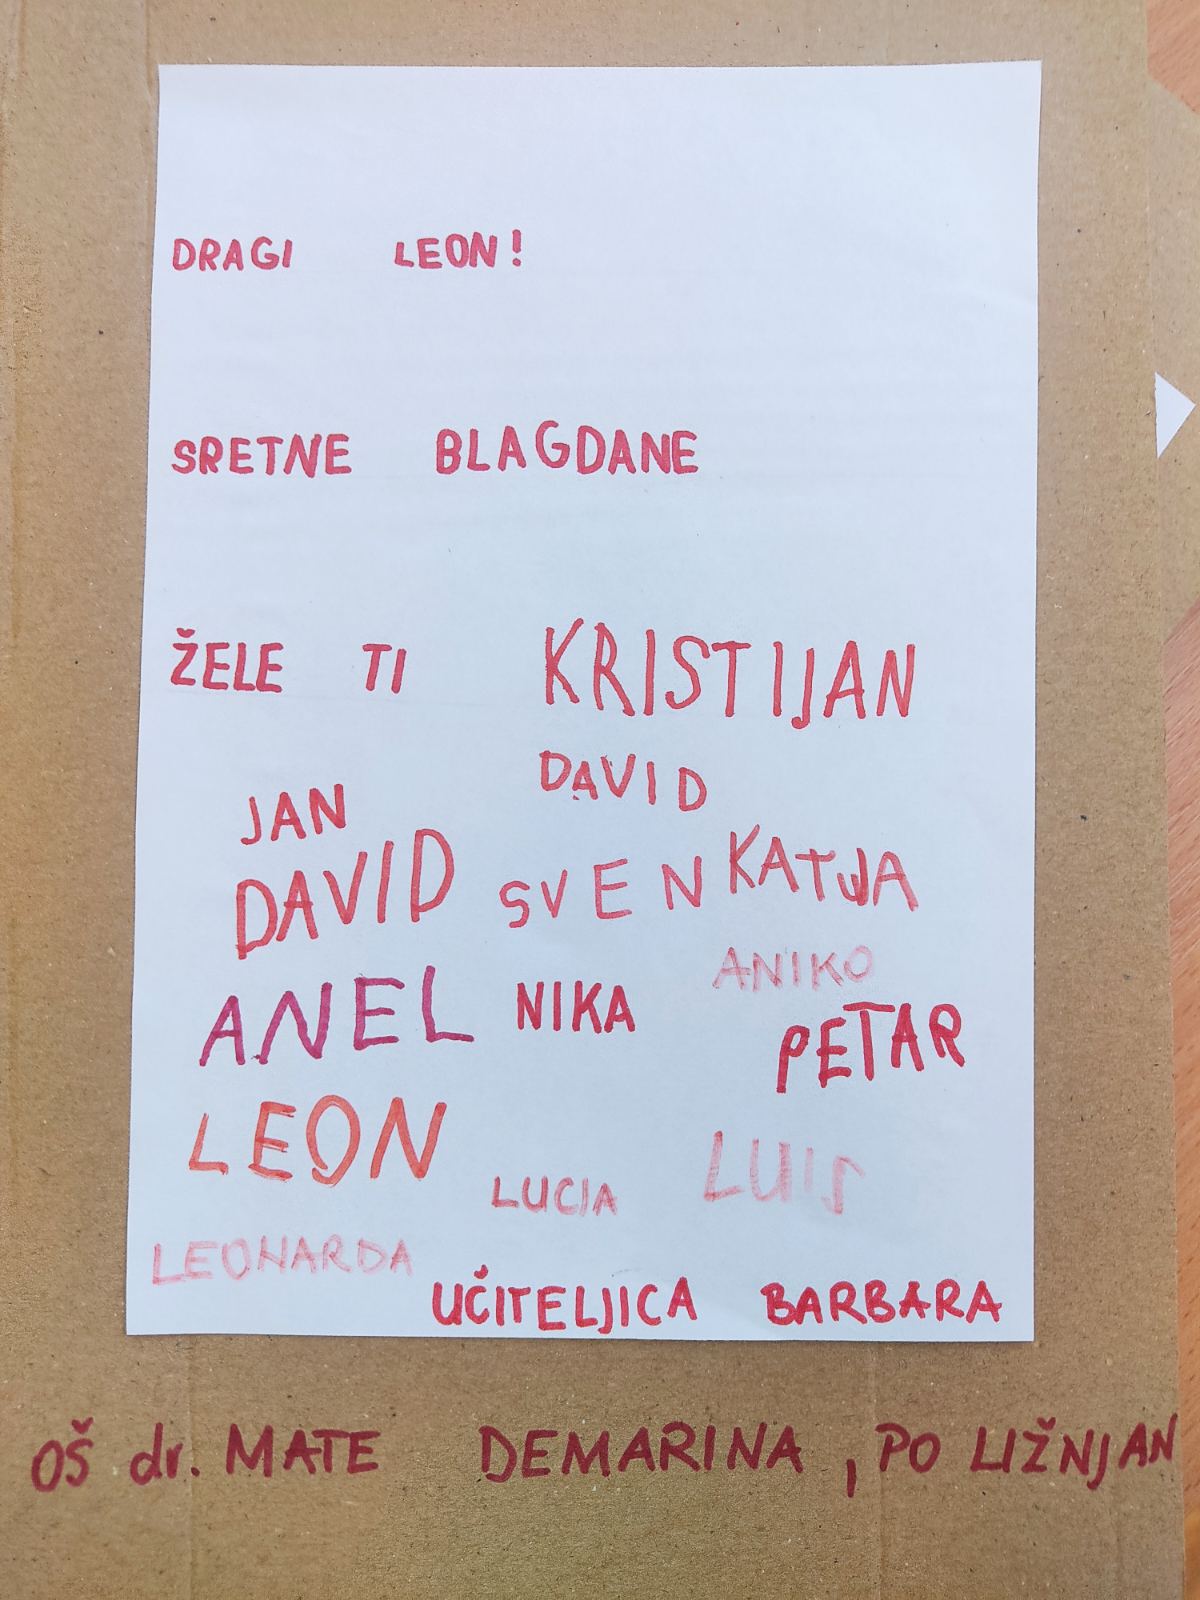 DRAGI LEON!
SRETNE BLAGDANE
ŽELE TI KRISTIJAN
DAVID
JAN
DAVID SVEN KATJA
ANIKO
ANEL NIKA
PETAR
LEON
LUCIA LUIS
LEONARDA
UČITELJICA BARBARA
OŠ dr. MATE DEMARINA, PO LIŽNJAN